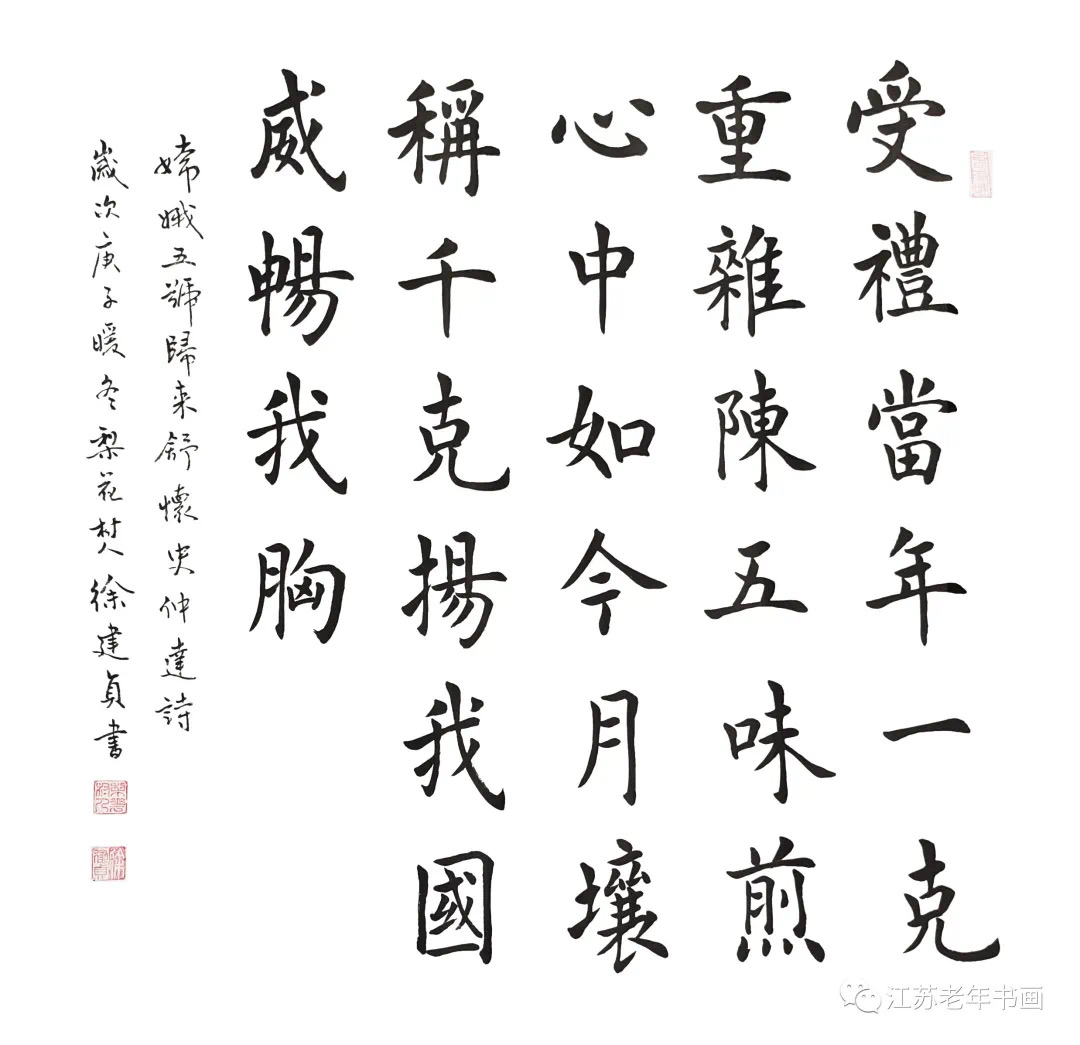 受禮當年一克
重雜陳五味煎
心中如今月壤
稱千克揚我國
威暢我胸
嫦娥五號歸来舒懷史仲達詩
歲次庚子暖冬梨花村人徐建貞书
江苏老年书画